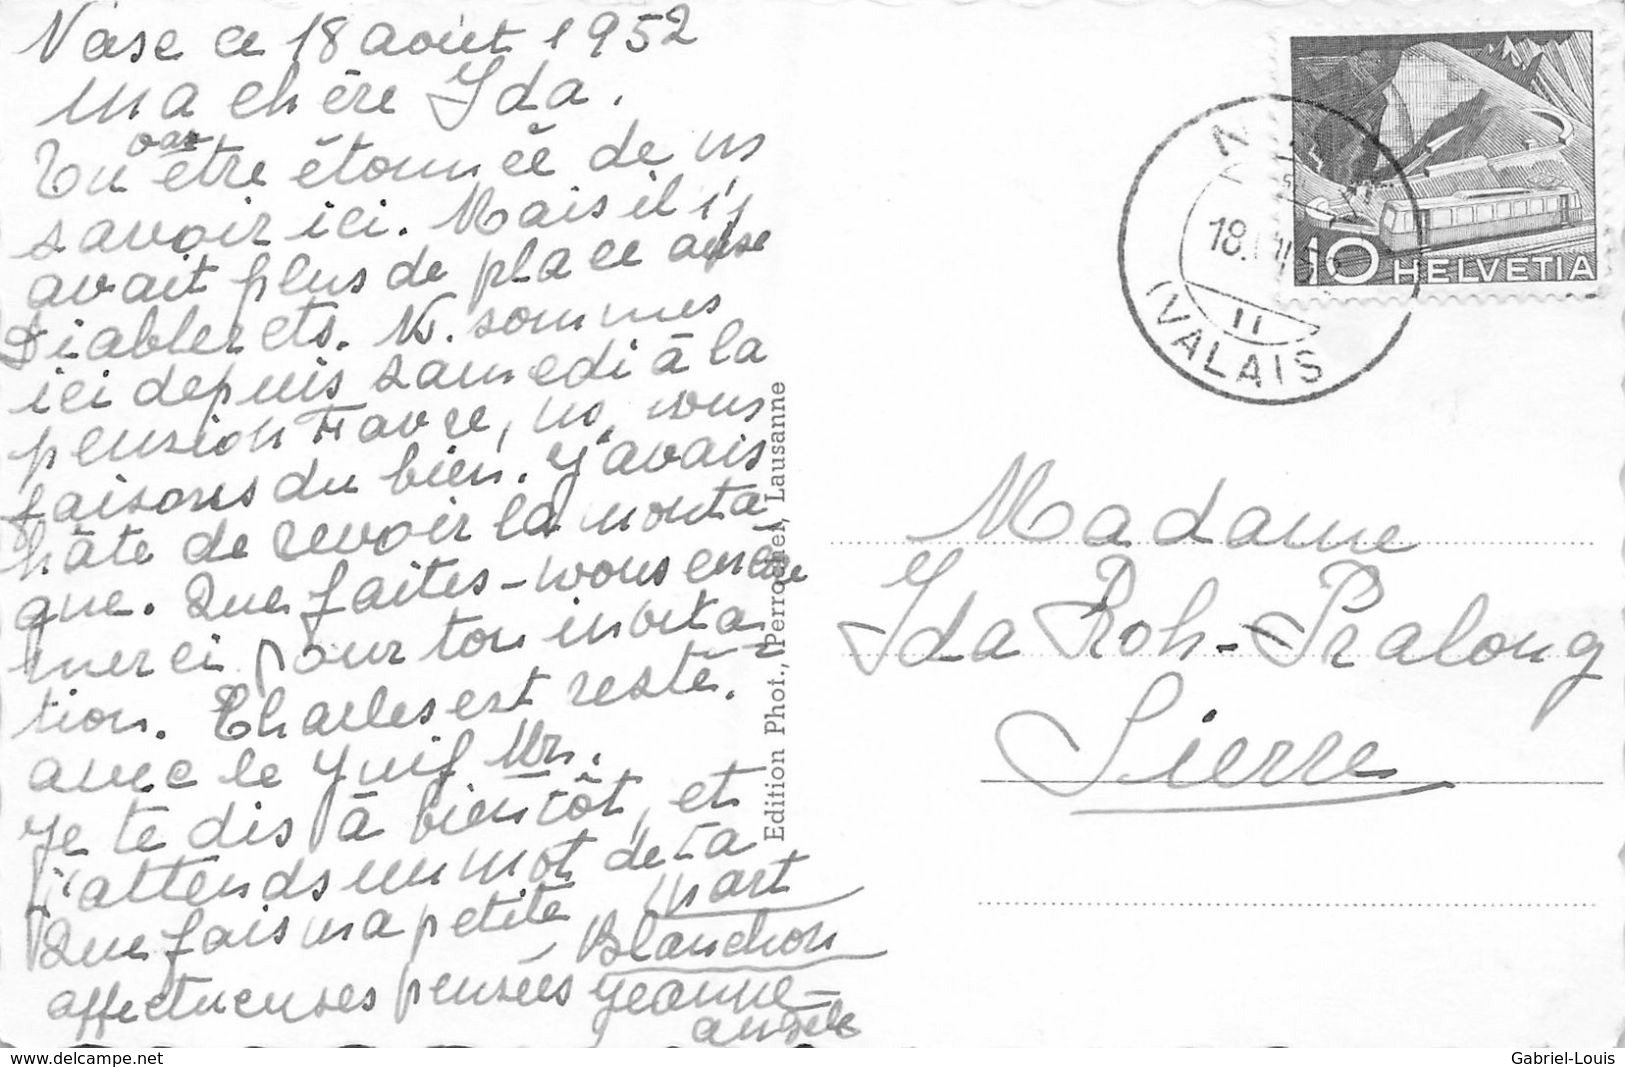 Nax ce 18 août 1952
ma chère Ida.
Tu vas être étonnée de ns
savoir ici. Mais il n'y
avait plus de place aux
Diablerets. Ns. sommes
ici depuis samedi à la
pension Favre, ns, nous
faisons du bien. J'avais
hâte de revoir la monta
gne. Que faites-vous encore
merci pour ton invita
tion. Charles est resté.
avec le Juif Mrn.
Je te dis à bientôt, et
j'attends un mot de ta
part
Que fais ma petite
Blanchon
affectueuses pensées Jeanne-
Angèle
Edition Phot., Perrochet, Lausanne
18.
(VALAIS
10 HELVETIA
Madame
Ida Roh-Pralong
Sierre
www.delcampe.net
Gabriel-Louis